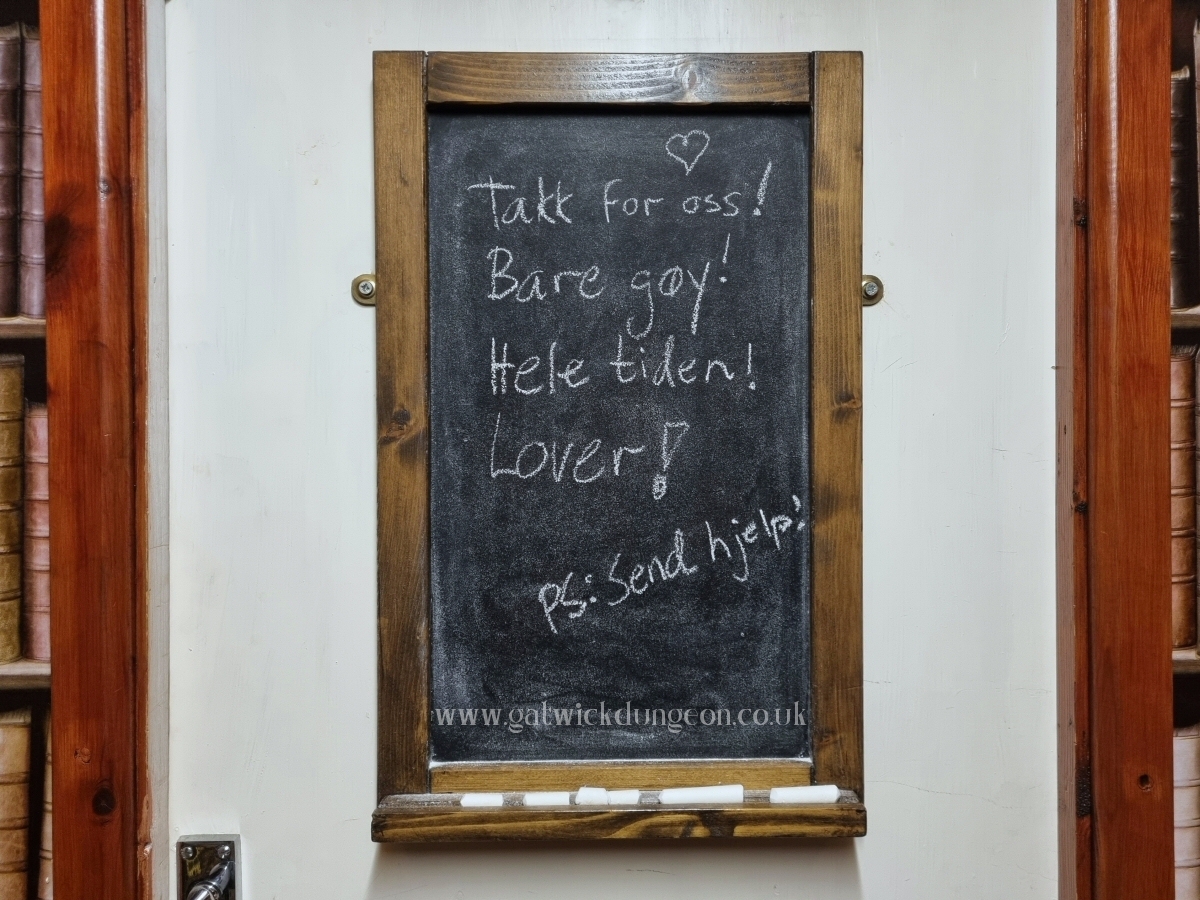 Takk for oss!
Bare gøy!
Hele tiden!
Lover!
PS: Send hjelp!
www.gatwickdungeon.co.uk